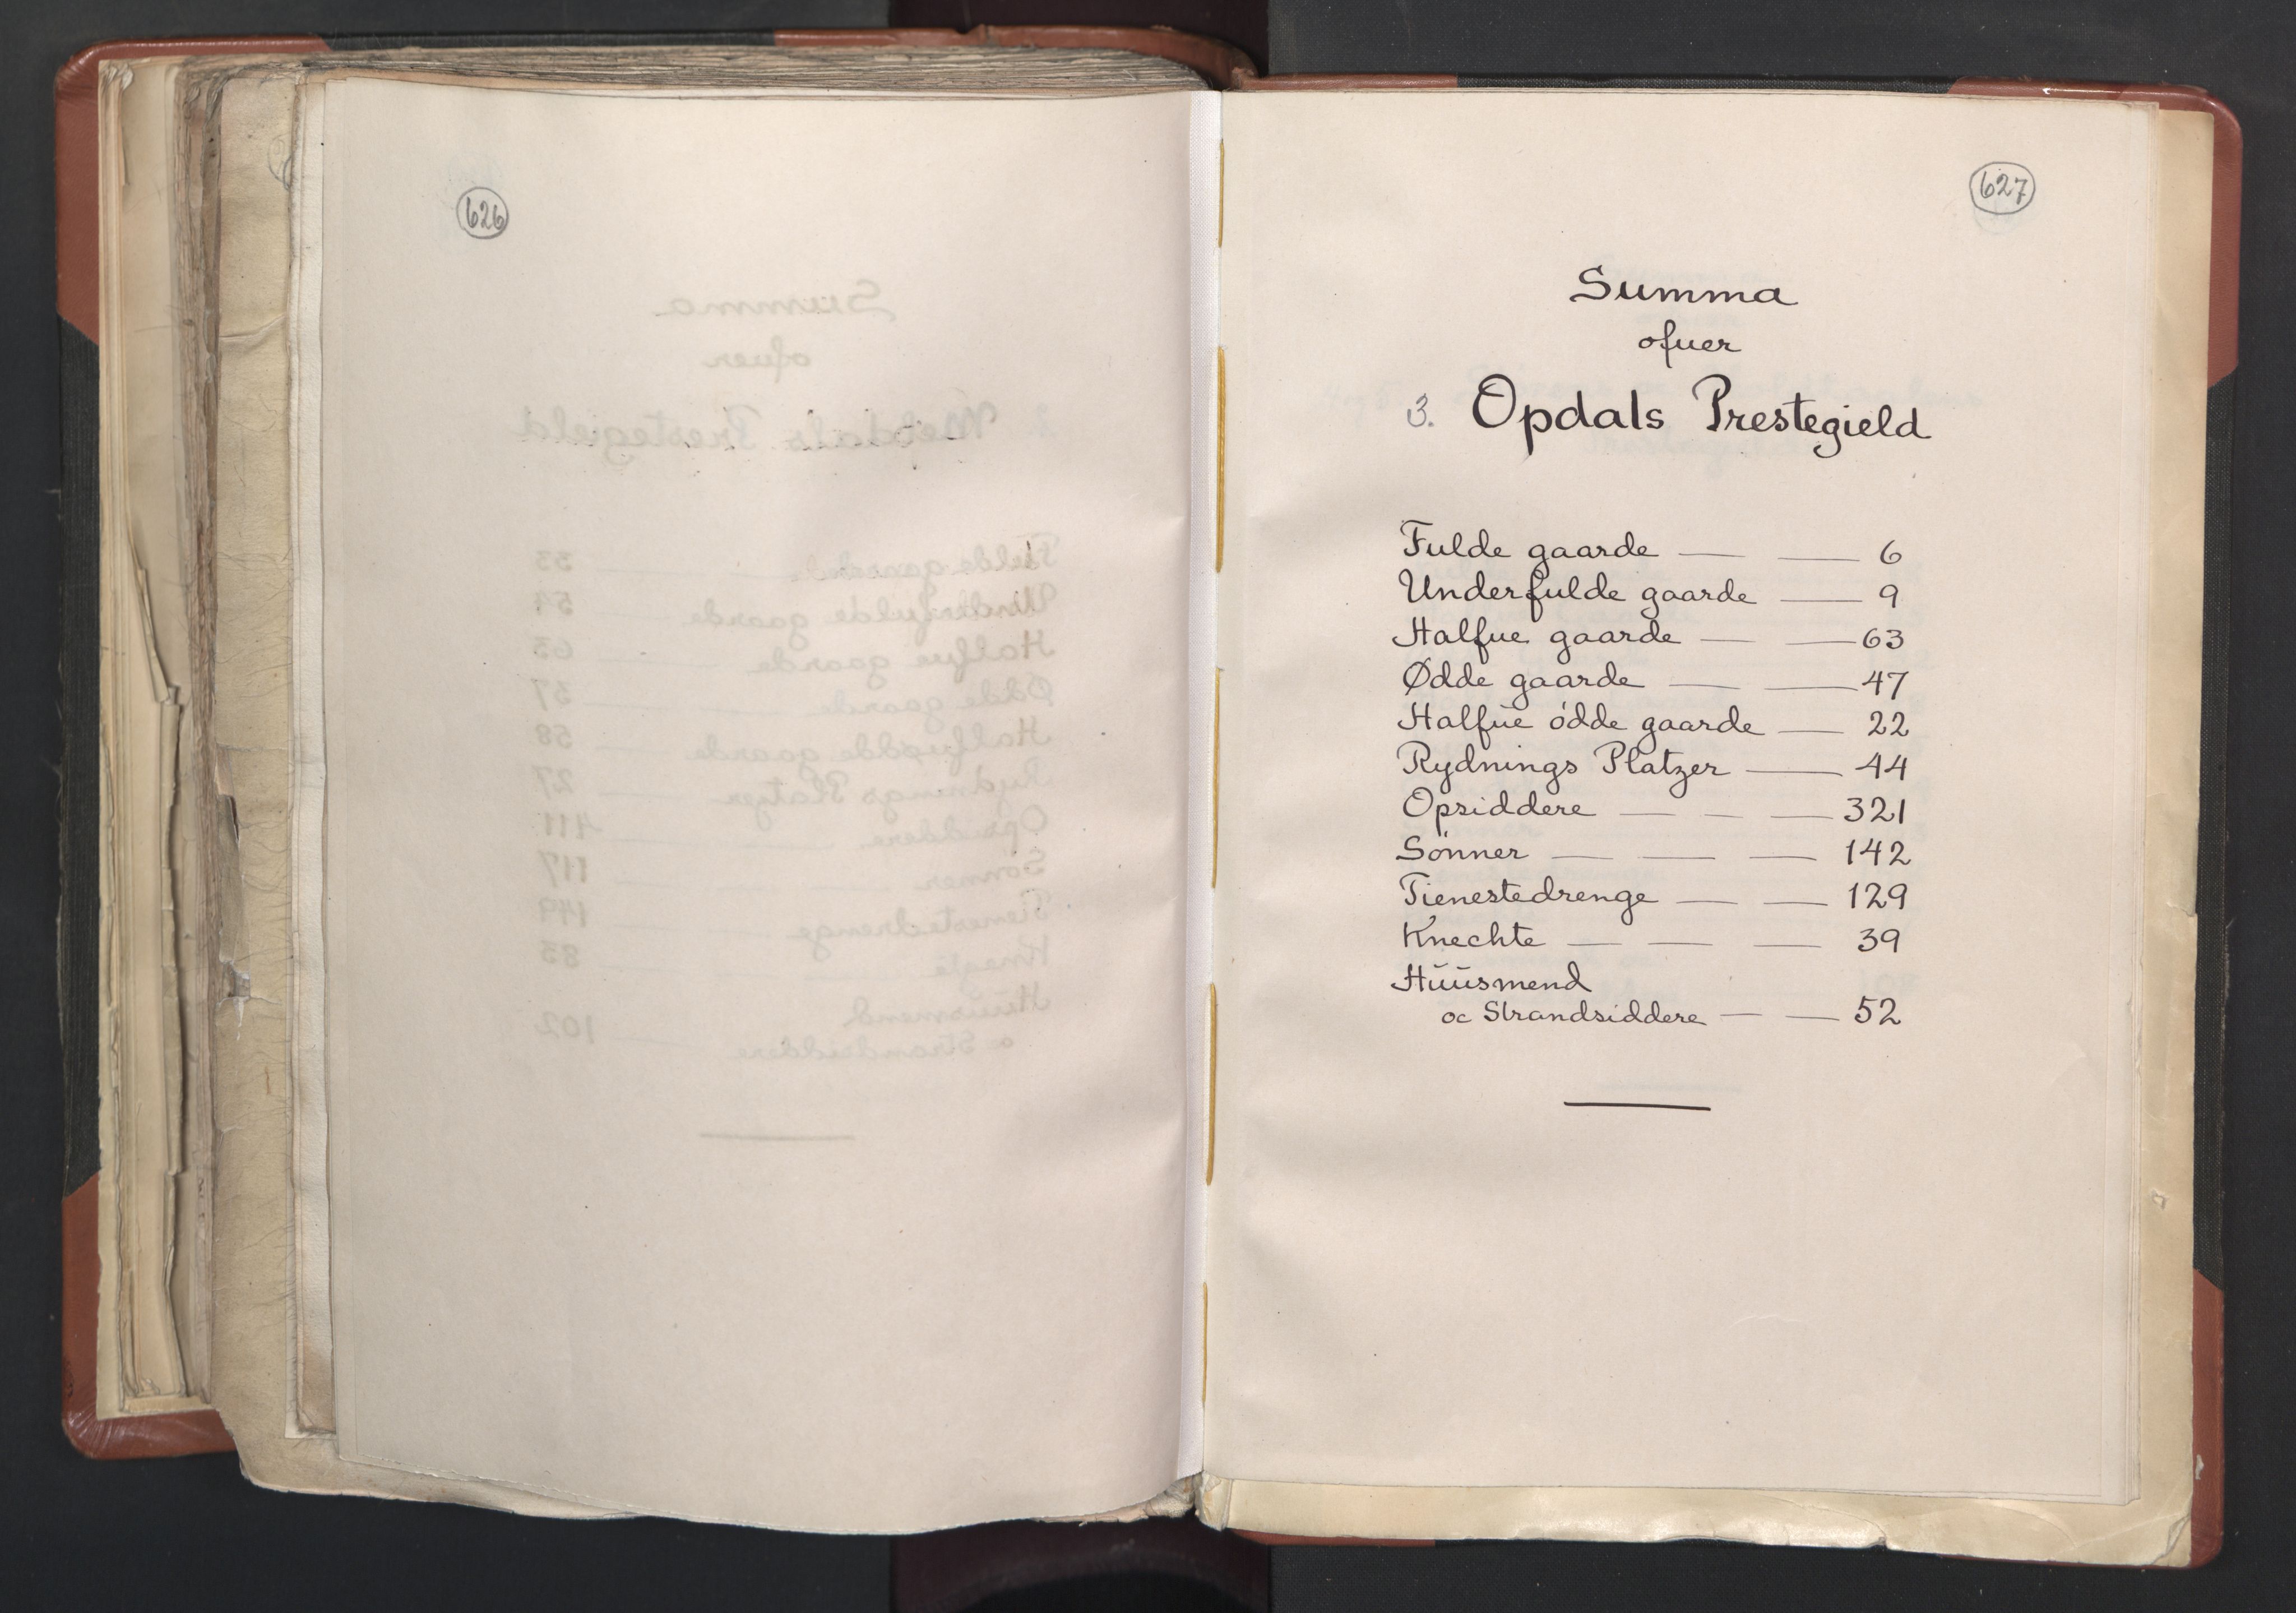 626
627
Summa
ofuer
3. Opdals Prestegield
Fulde gaarde — — 6
Underfulde gaarde — 9
Halfue gaarde — — 63
Ødde gaarde — — 47
Halfúe ódde gaarde — 22
Rydnings Platzer — 44
Opsiddere — — — 321
Sönner — — — 142
Tienestedrenge — — 129
Knechte — — — 39
Húúsmend
oc Strandsiddere — — 52